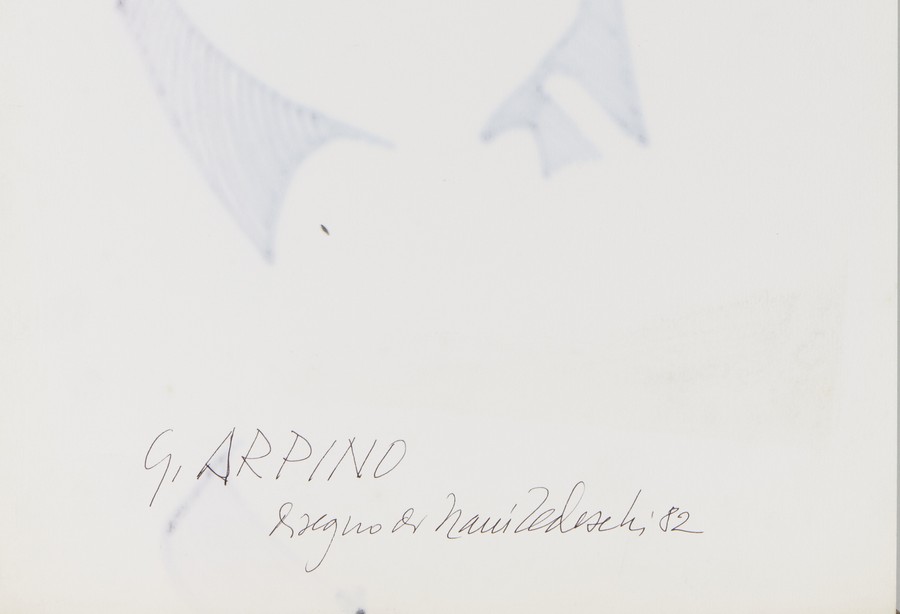 G. ARPINO
disegno di Nani Tedeschi 82